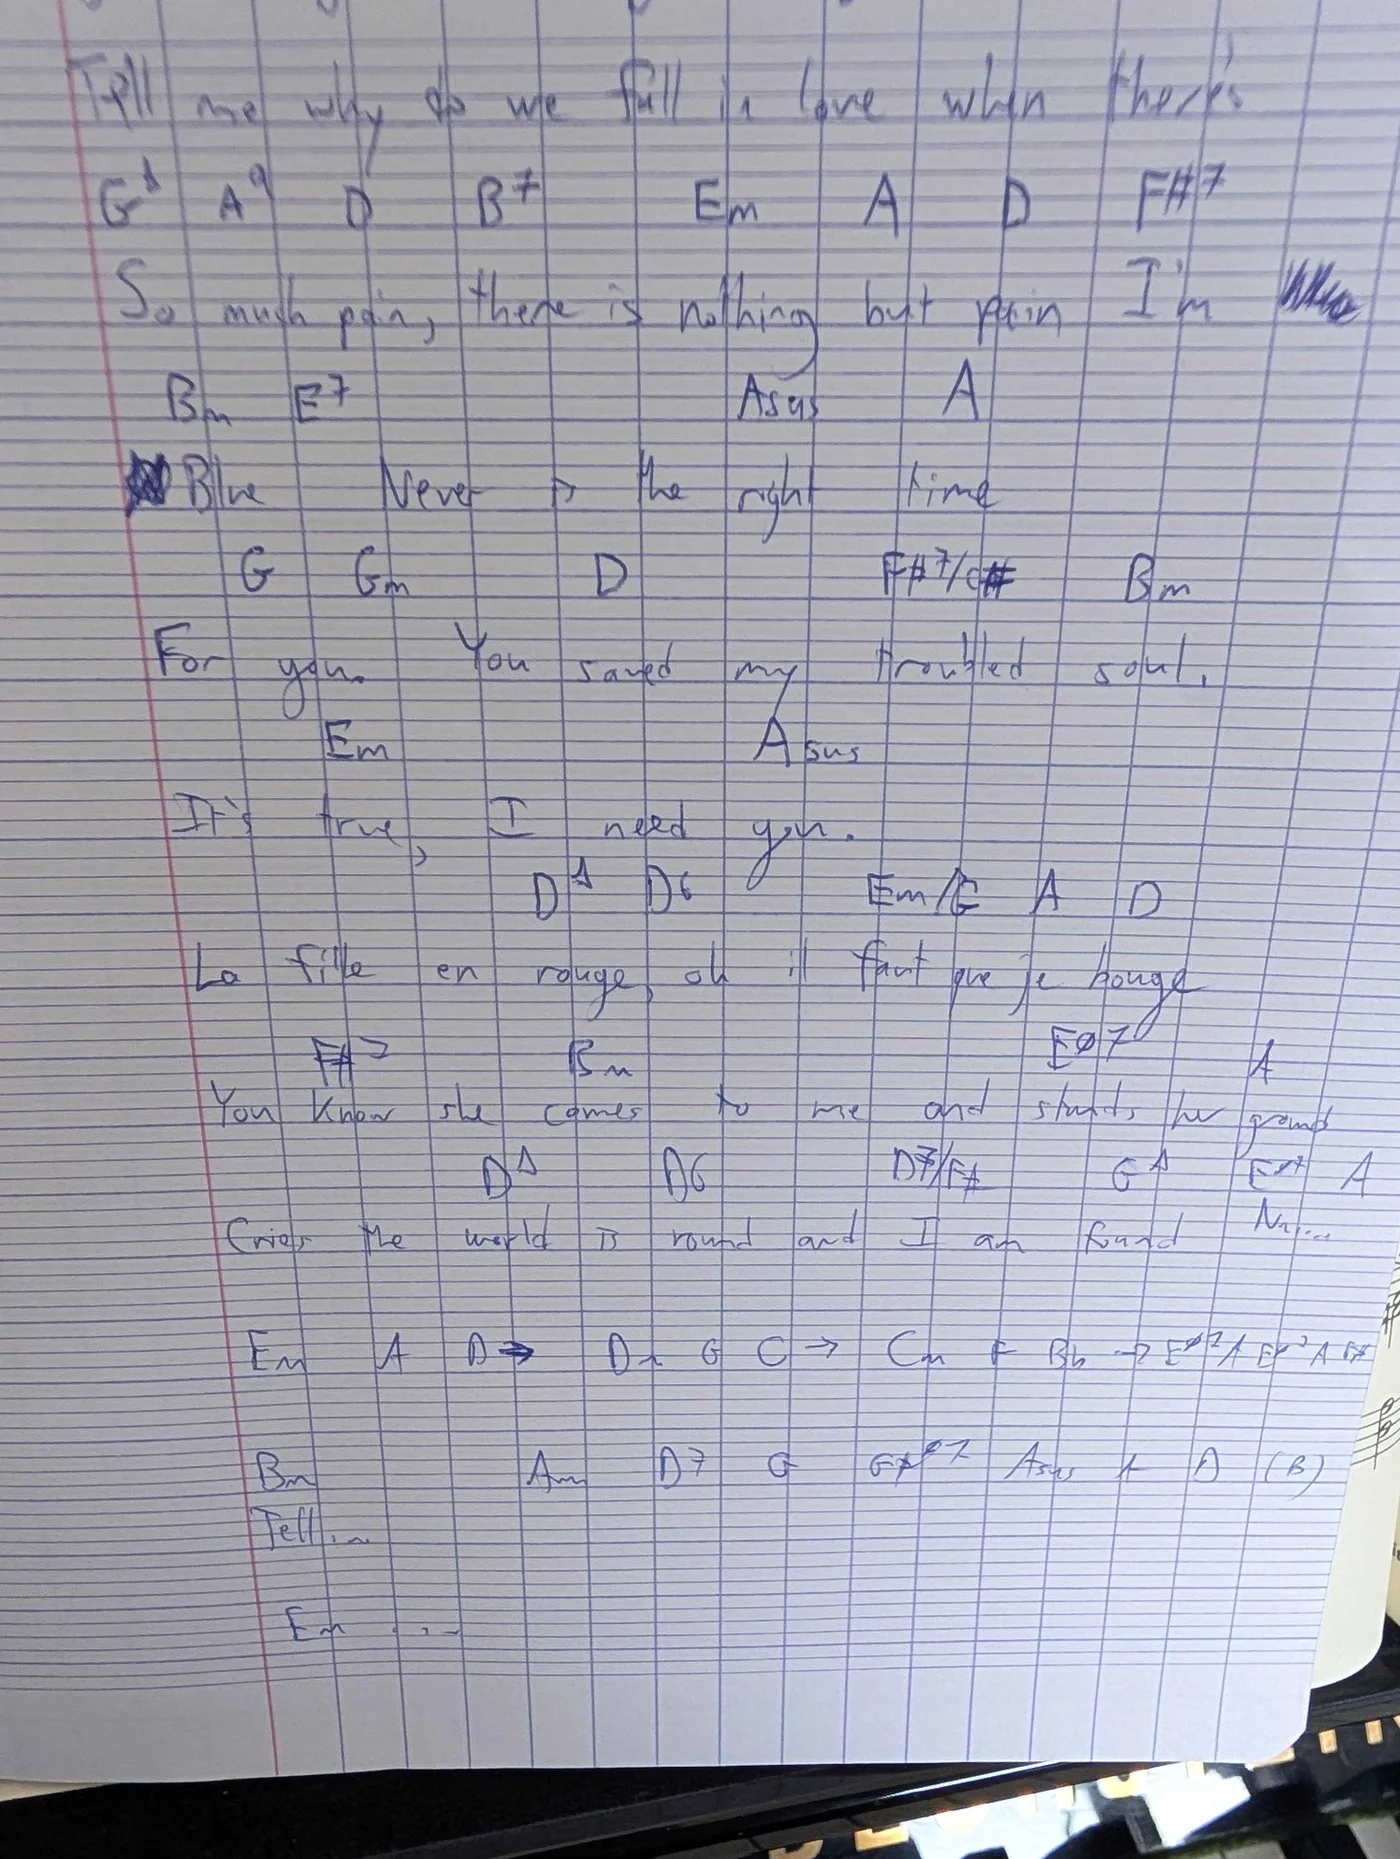 Tell me why do we fall in love when there's
GΔ A9 D B7 Em A D F#7
So much pain, there is nothing but pain I'm
Bm E7 Asus A
Blue Never is the right time
G Gm D F#7/C# Bm
For you. You saved my troubled soul.
Em Asus
It's true, I need you.
DΔ D6 Em/G A D
La fille en rouge, oh il faut que je bouge
F#7 Bm Eø7 A
You know she comes to me and stands her ground
DΔ D6 D7/F# GΔ Eø7 A
Cries the world is round and I am found Na...
Em A D → Dm G C → Cm F Bb → Eø7 A Eø7 A
Bm Am D7 G G#ø7 Asus A D (B)
Tell...
Em ...